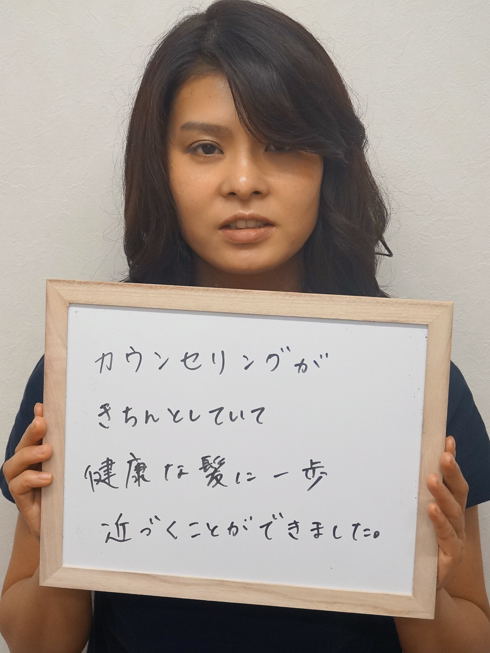 カウンセリングが
きちんとしていて
健康な髪に一歩
近づくことができました。